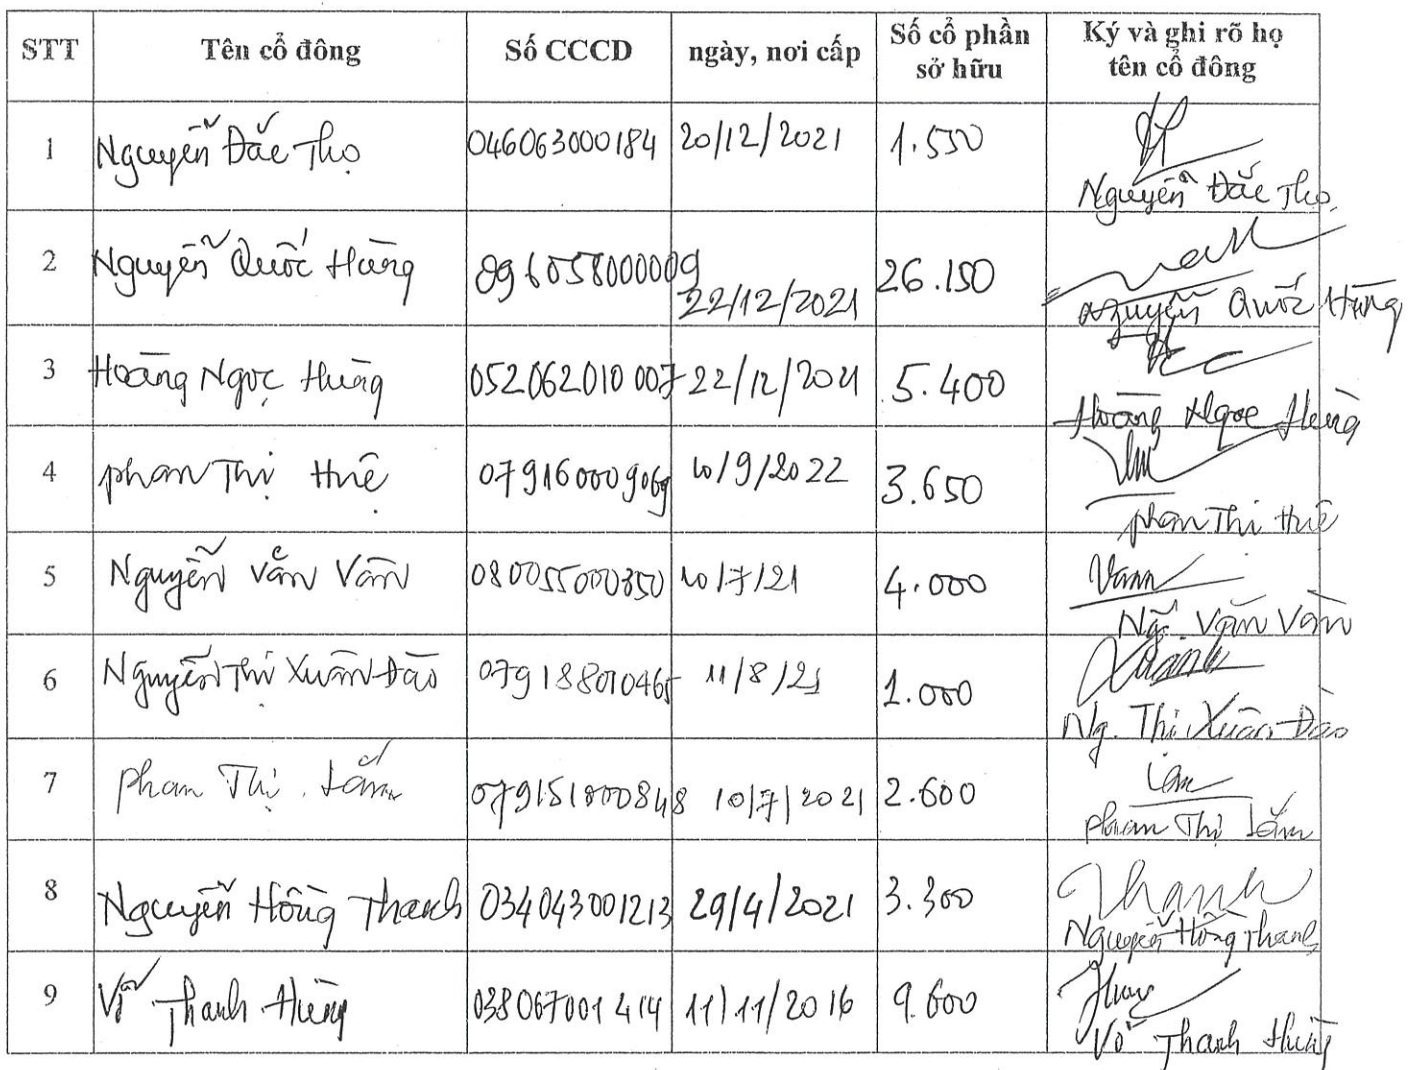 STT Tên cổ đông Số CCCD ngày, nơi cấp Số cổ phần sở hữu Ký và ghi rõ họ tên cổ đông
1 Nguyễn Đắc Thọ 046063000184 20/12/2021 1.550
Nguyễn Đắc Thọ
2 Nguyễn Quốc Hùng 096058000009 22/12/2021 26.150
Nguyễn Quốc Hùng
3 Hoàng Ngọc Hùng 052062010007 22/12/2021 5.400
Hoàng Ngọc Hùng
4 Phan Thị Huệ 079160009069 10/9/2022 3.650
Phan Thị Huệ
5 Nguyễn Văn Vân 080055000350 10/7/21 4.000
Vann
Ng. Văn Vân
6 Nguyễn Thị Xuân Đào 079188010465 11/8/21 1.000
Ng. Thị Xuân Đào
7 Phan Thị Lắm 079151000848 10/7/2021 2.600
Phan Thị Lắm
8 Nguyễn Hồng Thanh 034043001213 29/4/2021 3.300
Thanh
Nguyễn Hồng Thanh
9 Võ Thanh Hùng 038067001414 11/11/2016 9.600
Võ Thanh Hùng